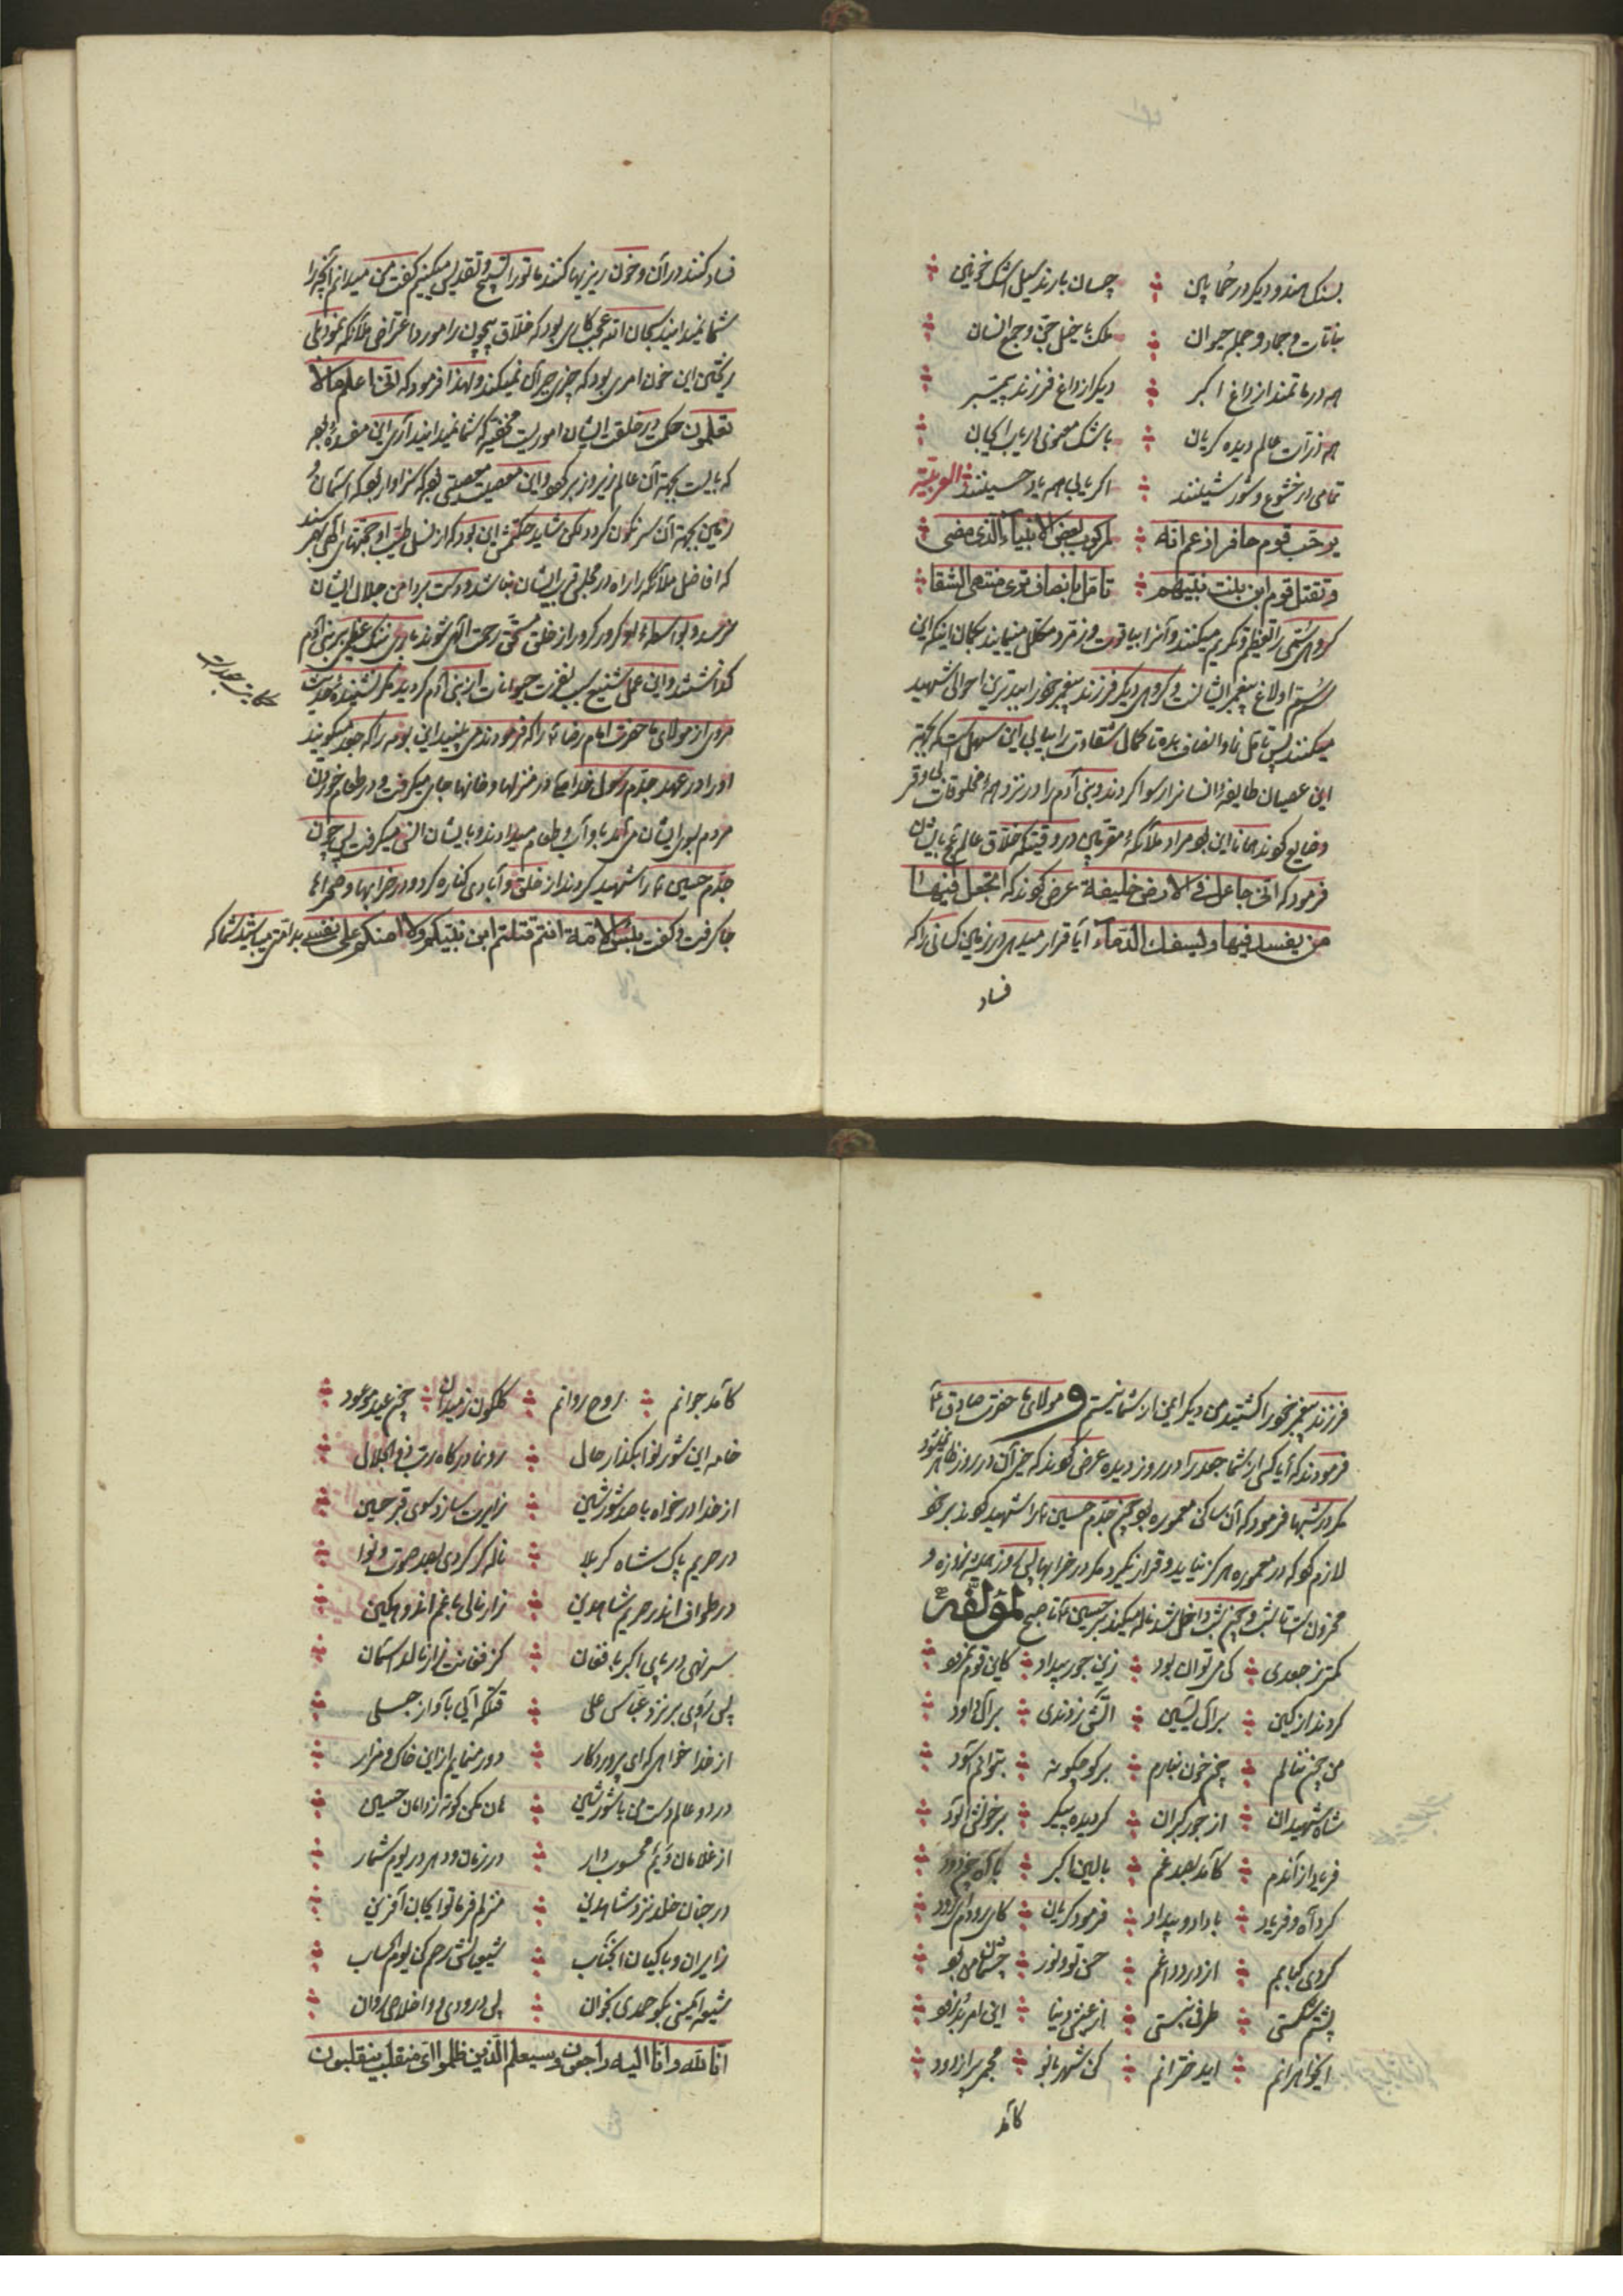 بسنک هند و دیکر در خُما پین ؞ چسان بارند سیل اشک خونین
نباتات و جماد و جمله حیوان ؞ ملک با خیل جنّ و جمع انسان
همه در ماتمند از داغ اکبر ؞ دیکر از داغ فرزند پیمبر
همه ذرّات عالم دیده کریان ؞ باشک معجونی
تمامی در خشوع و شور شینند ؞ اکر یابی همه یار حسینند العربیّه
یرحّب قوم حافرا زعم انّه ؞ لمرکوب بعض الانبیاء الّذی مضی
و تقتل قوم ابن بنت نبیّهم ؞ تامّل بانصاف تری منتهی الشقا
کروهی سُمّی را تعظیم و تکریم میکنند و آنرا بیاقوت و زمرّد مکلّل مینمایند بکمان اینکه این
سُم اولاغ پیغمبر ایشان است و کروهی دیکر فرزند پیغمبر خود را ببدترین احوالی شهید
میکنند پس تامّل نما و انصاف بده تا کمال شقاوت را بیابی این سهل است که بجهة
این عصیان طایفهٔ انسانرا رسوا کردند و بنی آدم را در نزد همه مخلوقات بی وقر
و ضایع کردند همانا این بود مراد ملائکهٔ مقرّبین در وقتیکه خلّاق عالم بایشان
فرمود که انّی جاعل فی الارض خلیفة عرض کردند که اتجعل فیها
من یفسد فیها و یسفک الدّماء آیا قرار میدهی در زمین کسانی را که
فساد
فساد کنند در آن و خون ریزیها کنند ما تو را تسبیح و تقدیس میکنیم کفت من میدانم آنچه را
شما نمیدانید سبحان الله عجب کاری بود که خلّاق بیچون را مورد اعتراض ملائکه نمود بلی
ریختن این خون امری بود که چیزی جبر آن نمیکند و لهذا فرمود که انّی اعلم ما لا
تعلمون حکمت در خلقت ایشان اموریست مخفیّه که شما نمیدانید آری این مفسدهٔ بود
که بایست بجهة آن عالم زیر و زبر کردد و این معصیت معصیتی بود که سزاوار بود که آسمان
زمین بجهة آن سرنکون کردد لکن شاید حکمتش این بود که از نسل طیّب او حجّتهای الهی بهم رسند
که افاضل ملائکه را راه در محلّ قرب ایشان نباشد و دست بر دامن جلال ایشان
نرسد و بواسطهٔ او کرور کرور از خلق مستحقّ رحمت الهی شوند باری ننک عظیمی بر بنی آدم
کذاشتند و این عمل شنیع سبب نفرت حیوانات از بنی آدم کردید مکر نشنیدهٔ حدیث
حکایت جغد است
مروی از مولای ما حضرت امام رضاء را که فرمودند می بینید این بومه را که جغد میکویند
او را در عهد جدّم رسول خدا ص در منزلها و خانها جای میکرفت و در طعام خوردن
مردم بسوی ایشان می آمد باو آب و طعام میدادند و بایشان انس میکرفت پس چون
جدّم حسین ع را شهید کردند از خلق و آبادی کناره کرد و در خرابها و صحراها
جا کرفت و کفت بئس الامّة انتم قتلتم ابن نبیّکم ولا امنکم علی نفسی بد امّتی میباشید شما که
فرزند پیغمبر خود را کشتید من دیکر ایمن از شما نیستم و مولای ما حضرت صادق ع
فرمودند که آیا کسی از شما جغد را در روز دیده عرض کردند که خیر آن در روز ظاهر نمیشود
مکر در شبها فرمود که آن ساکن معموره بود چون جدّم حسین ع را شهید کردند بر خود
لازم کرد که در معموره هرکز نیاید و قرار نکیرد مکر در خرابها پس روز همیشه روزه و
محزون است تا شب و چون شب داخل شد ناله میکند بر حسین ع تا صبح لمؤلّفه
کمتر ز جغدی ؞ کی میتوان بود ؞ زین جور بیداد ؞ کاین قوم نمرود
کردند از کین ؞ بر آل یٰسین ؞ آتش زدندی ؞ بر آل داود
من چون ننالم ؞ چون خون نبارم ؞ بر کو چکونه ؞ بتوانم آسود
شاه شهیدان ؞ از جور کبران ؞ کردیده پیکر ؞ بر خونش آلود
فریاد از آندم ؞ کآمد بصد غم ؞ بالین اکبر ؞ با آه پر دود
کرد آه و فریاد ؞ با داد و بیداد ؞ فرمود کریان ؞ کای رودم ای رود
کردی کبابم ؞ از درد داغم ؞ حسن تو و نور ؞ چشمان من بود
پشتم شکستی ؞ طرفی نبستی ؞ از عیش دنیا ؞
ایخواهرانم ؞ ای دخترانم ؞ کن شهربانو ؞ مجمر پر از دود
کآمد
کآمد جوانم ؞ روح روانم ؞ کلکون ز میدان ؞ چون عید موعود
خامه این شور نوا بکذار حال ؞ رو نما درکاه ربّ ذو الجلال
از خدا در خواه با صد شور شین ؞ زایرت سازد سوی قبر حسین
در حریم پاک شاه کربلا ؞ ناله کر کردی بصد صوت و نوا
در طواف اندر حریم شاهدین ؞ زار نالی با غم اندوهکین
سر نهی در پای اکبر با فغان ؞ کز فغانت زار نالد آسمان
پس روی بر نزد عبّاس علی ؞ آیی بآواز جلی
از خدا خواهی که ای پروردکار ؞ دور منمایم از این خاک و مزار
در دو عالم دست من با شور شین ؞ هان مکن کوته ز دامان حسین
از غلامان ویم محسوب دار ؞ در زمان و دهر در یوم شمار
در جنان خلد نزد شاهدین ؞ منزلم فرما تو ایجان آفرین
زایران و باکیان آنجناب ؞ شیعیانش رحم کن یوم الحساب
شیعه ایمنی بکو حمدی بخوان ؞ پس درودی و اخلاص روان
انّا لله و انّا الیه راجعون و سیعلم الّذین ظلموا ای منقلب ینقلبون